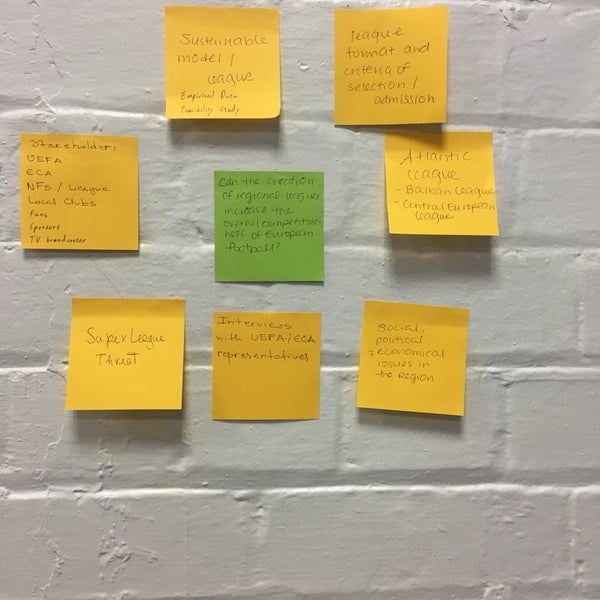 Sustainable
model /
league
Empirical Data
Feasibility Study
league
format and
criteria of
selection /
admission
Stakeholders:
UEFA
ECA
NFS / League
Local Clubs
Fans
Sponsors
TV broadcaster
Can the creation
of regional leagues
increase the
overall competitive-
ness of European
football?
- Atlantic
league
- Balkan League
- Central European
league
Super League
Threat
Interviews
with UEFA/ECA
representatives
Social,
political,
economical
issues in
the region